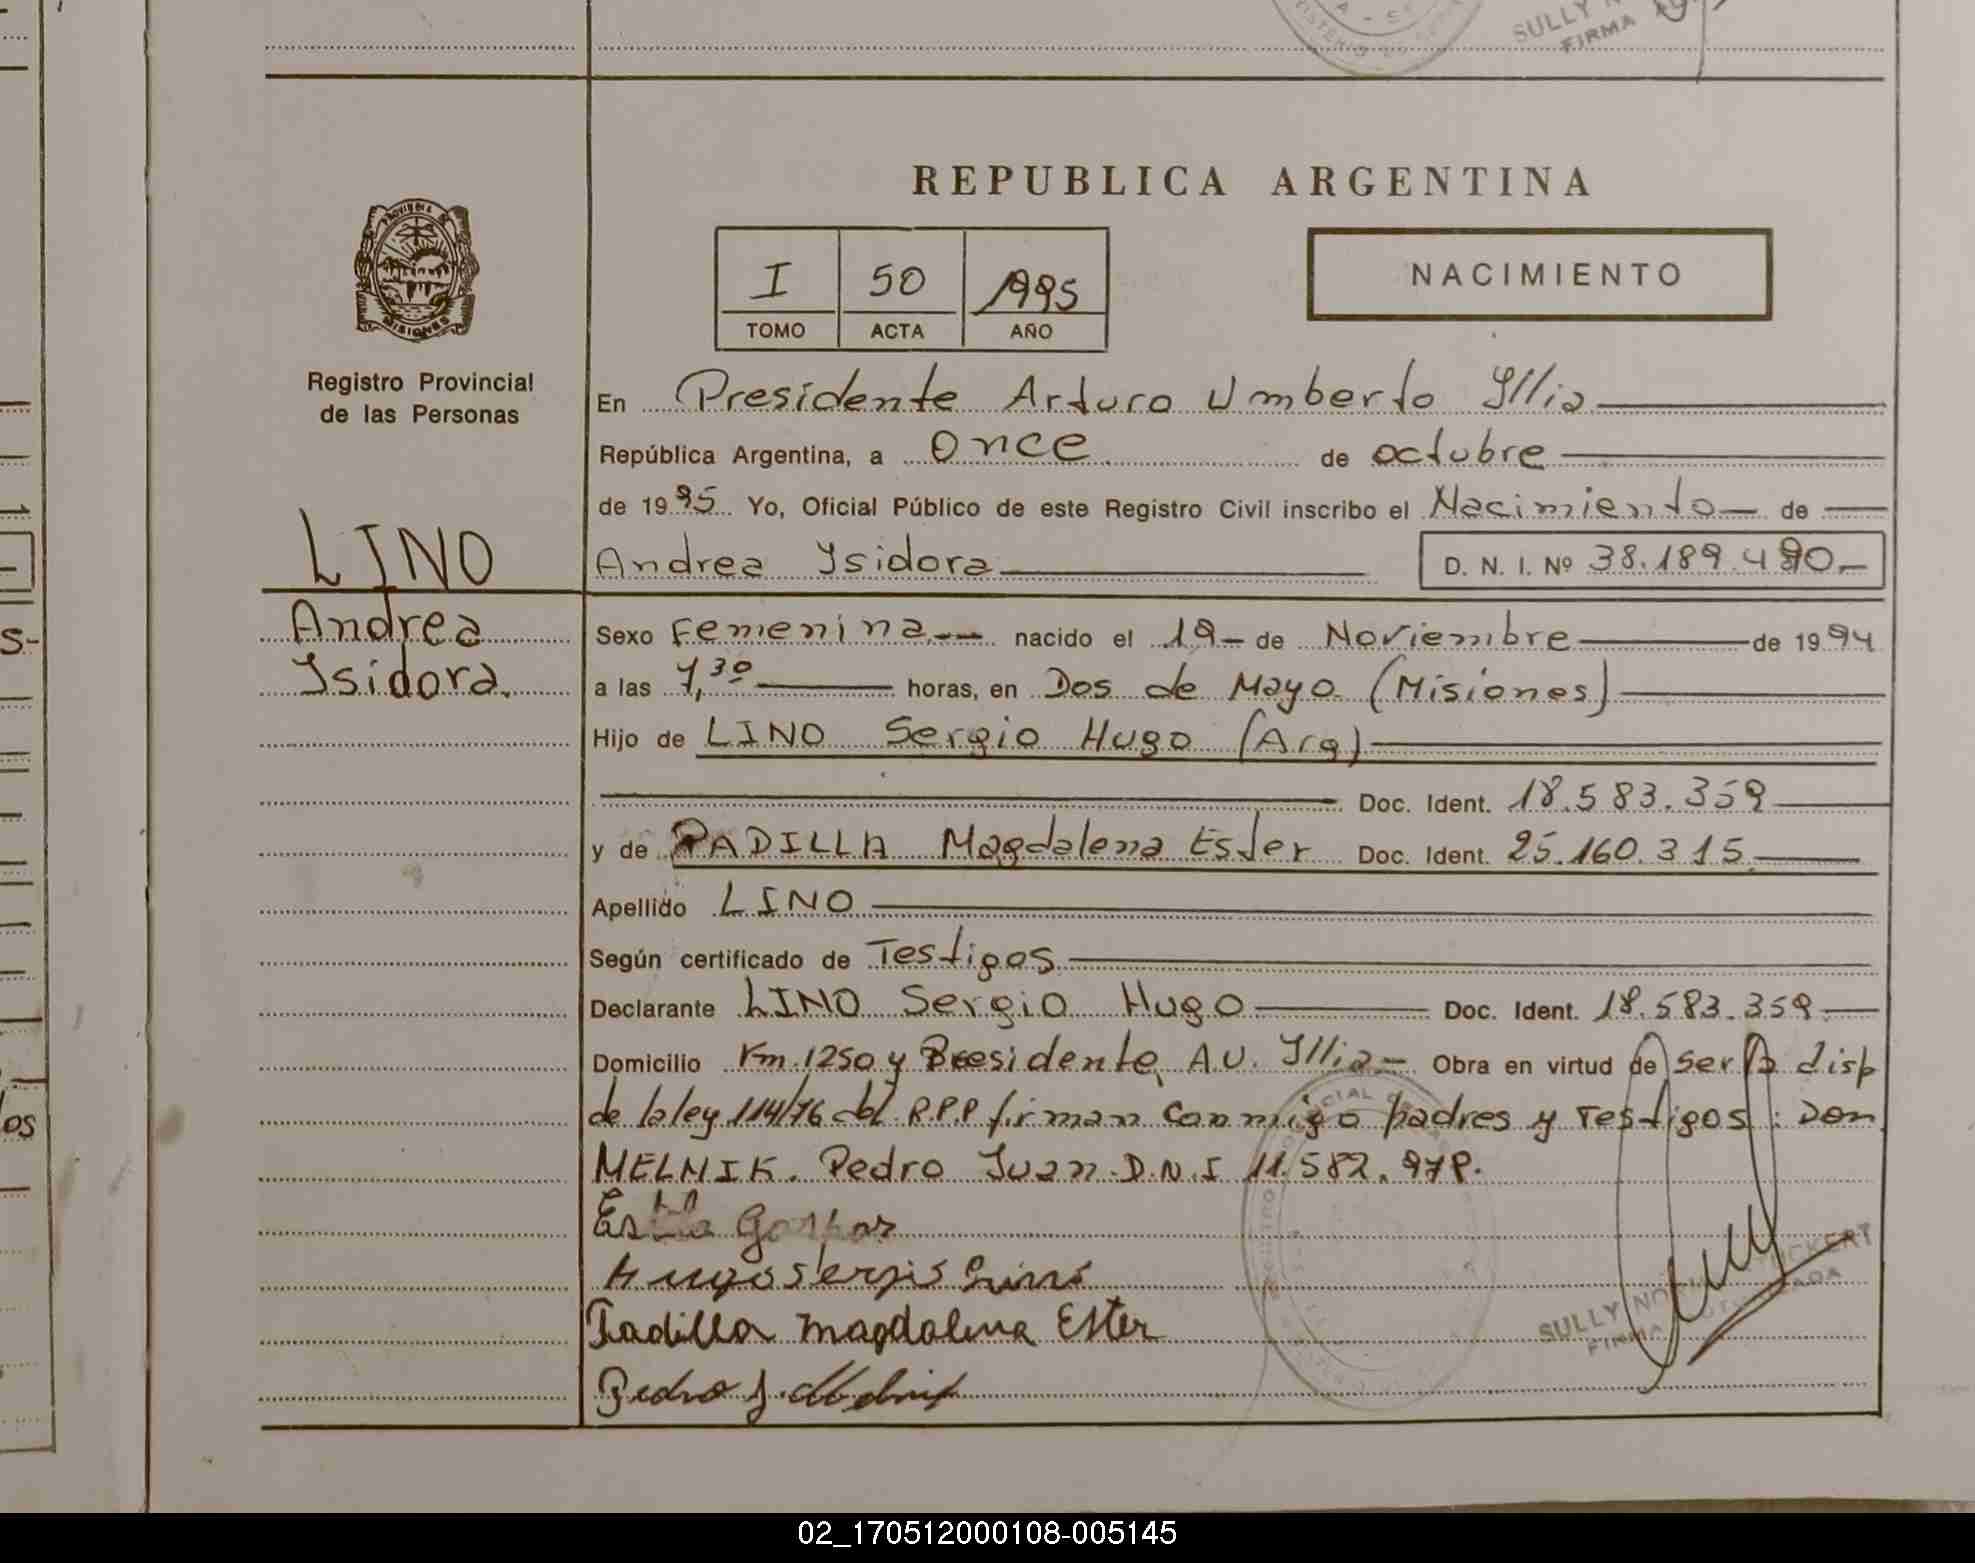 SULLY
FIRMA
REPUBLICA ARGENTINA
PROVINCIA
MISIONES
I 50 1995
TOMO ACTA AÑO
NACIMIENTO
Registro Provincial
de las Personas
LINO
Andrea
Isidora.
En Presidente Arturo Umberto Yllia
República Argentina, a once de octubre
de 1995 Yo, Oficial Público de este Registro Civil inscribo el Nacimiento de
Andrea Isidora D. N. I. Nº 38.189.490.-
Sexo Femenina nacido el 19 de Noviembre de 1994
a las 7,30 horas, en Dos de Mayo (Misiones)
Hijo de LINO Sergio Hugo (Arg)
Doc. Ident. 18.583.359
y de PADILLA Magdalena Ester Doc. Ident. 25.160.315
Apellido LINO
Según certificado de Testigos
Declarante LINO Sergio Hugo Doc. Ident. 18.583.359
Domicilio Km.1250 y Presidente A.U. Yllia Obra en virtud de ser la disp
de la ley 114/76 del R.P.P firman conmigo padres y Testigos: Don
MELNIK. Pedro Juan D.N.I 11.582.978.
Gaspar
Hugo Sergio Lino
Padilla Magdalena Ester
Pedro J. Melnik
SULLY
FIRMA
02_170512000108-005145